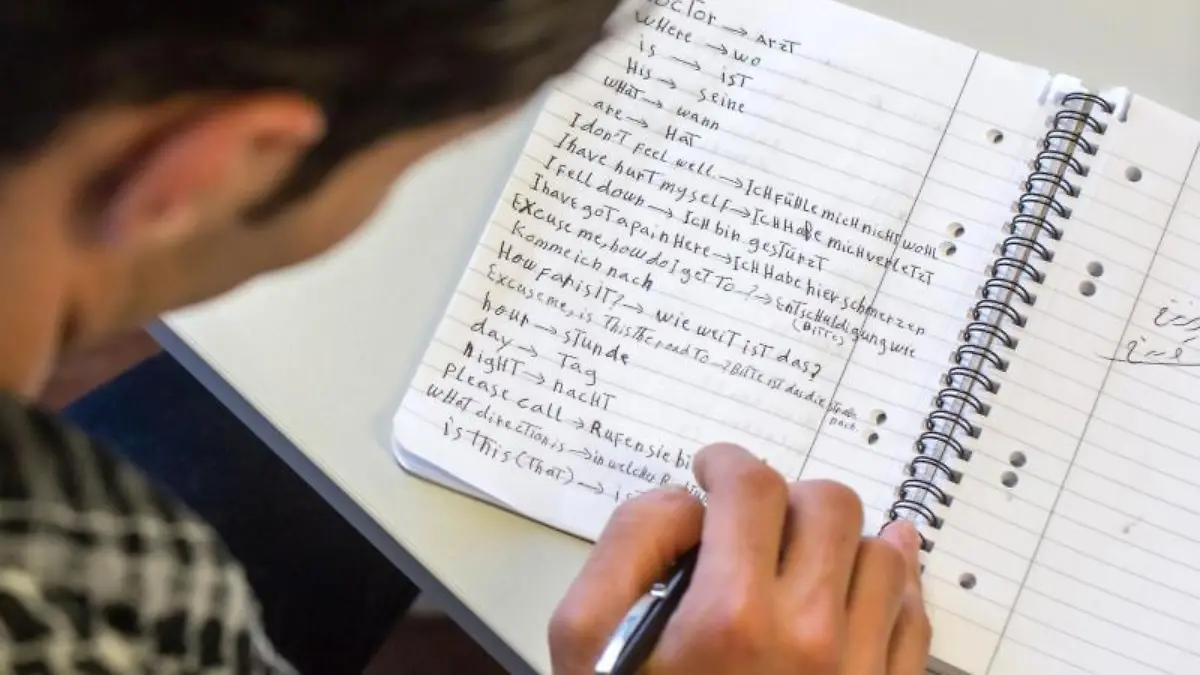 Doctor → Arzt
Where → wo
is → ist
His → seine
What → wann
are → Hat
I don't feel well → Ich fühle mich nicht wohl
I have hurt myself → Ich habe mich verletzt
I fell down → Ich bin gestürzt
I have got a pain here → Ich habe hier schmerzen
Excuse me, how do I get to ? → Entschuldigung wie
(Bitte)
Komme ich nach
How far is it? → wie weit ist das?
Excuse me, is this the road to → Bitte ist das die
nach
hour → stunde
day → Tag
night → nacht
please call → Rufen sie
What direction is → in welcher
is this (that) →